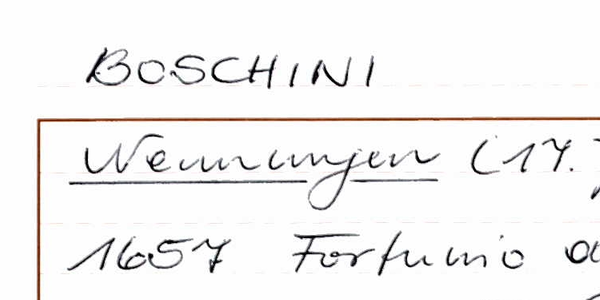 BOSCHINI
Nennungen (17.
1657 Fortunio